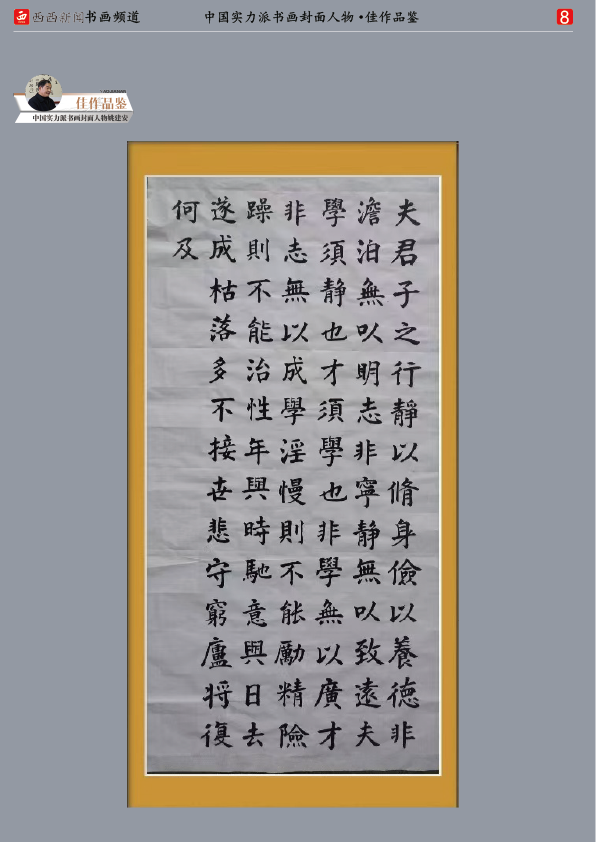 西西新闻书画频道
中国实力派书画封面人物·佳作品鉴
8
佳作品鉴
中国实力派书画封面人物姚建安
夫君子之行靜以脩身儉以養德非
澹泊無以明志非寧静無以致遠夫
學須静也才須學也非學無以廣才
非志無以成學淫慢則不能勵精險
躁則不能治性年與時馳意與日去
遂成枯落多不接世悲守窮廬将復
何及